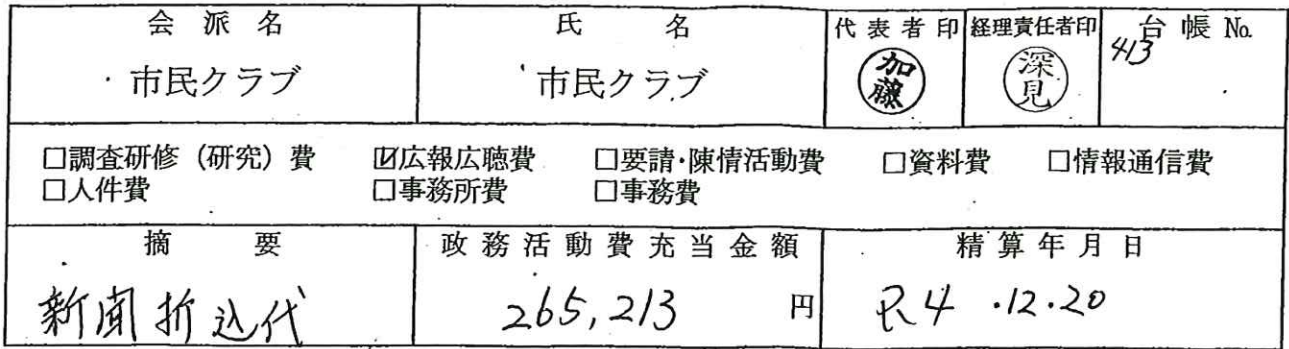 会派名 氏名 代表者印 経理責任者印 台帳No.
市民クラブ 市民クラブ 加藤 深見 413
□調査研修（研究）費 ☑広報広聴費 □要請・陳情活動費 □資料費 □情報通信費
□人件費 □事務所費 □事務費
摘要 政務活動費充当金額 精算年月日
新聞折込代 265,213 円 R4.12.20